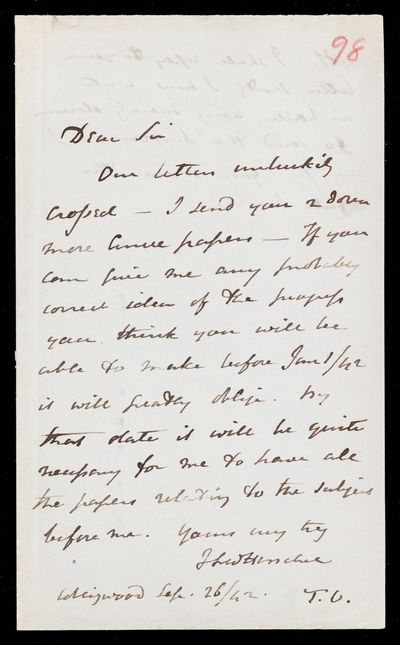 98
Dear Sir
Our letters unluckily
crossed — I send you 2 dozen
more Curve papers — If you
can give me any probably
correct idea of the progress
you think you will be
able to make before Jan 1/42
it will greatly oblige. By
that date it will be quite
necessary for me to have all
the papers relating to the subject
before me. Yours very try
JFWHerschel
Collingwood Sep. 26/42.
T.O.